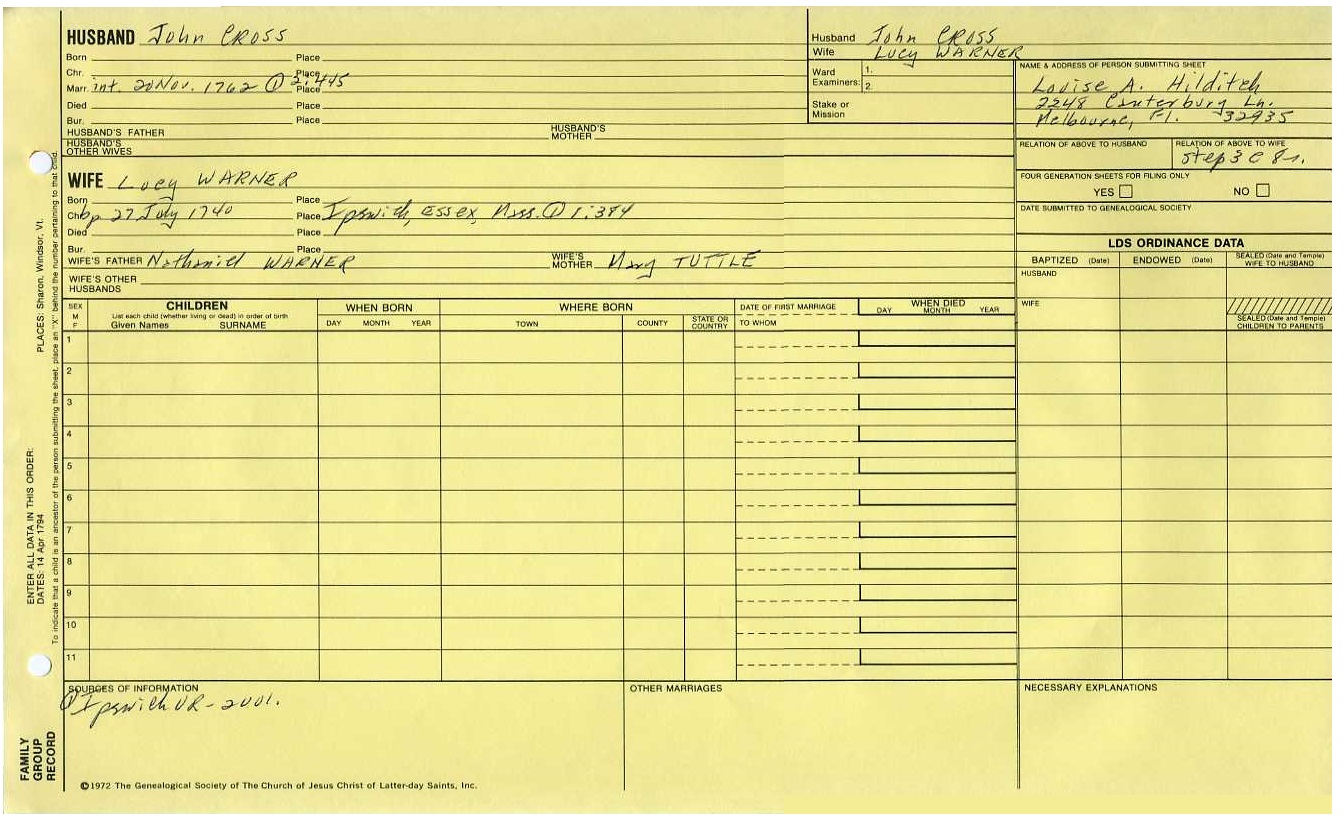 HUSBAND John CROSS
Born Place
Chr. Place
Marr. int. 20 Nov. 1762 ① Place 2:445
Died Place
Bur. Place
HUSBAND'S FATHER HUSBAND'S MOTHER
HUSBAND'S OTHER WIVES
Husband John CROSS
Wife Lucy WARNER
Ward Examiners: 1.
2.
Stake or Mission
NAME & ADDRESS OF PERSON SUBMITTING SHEET
Louise A. Hilditch
2248 Canterbury Ln.
Melbourne, Fl. 32935
RELATION OF ABOVE TO HUSBAND RELATION OF ABOVE TO WIFE
step 3 c 8r.
FOUR GENERATION SHEETS FOR FILING ONLY
YES NO
DATE SUBMITTED TO GENEALOGICAL SOCIETY
WIFE Lucy WARNER
Born Place
Chr. bp 27 July 1740 Place Ipswich, Essex, Mass. ① 1:384
Died Place
Bur. Place
WIFE'S FATHER Nathaniel WARNER WIFE'S MOTHER Mary TUTTLE
WIFE'S OTHER HUSBANDS
LDS ORDINANCE DATA
BAPTIZED (Date) ENDOWED (Date) SEALED (Date and Temple) WIFE TO HUSBAND
HUSBAND
WIFE
SEALED (Date and Temple) CHILDREN TO PARENTS
SEX M F
CHILDREN
List each child (whether living or dead) in order of birth
Given Names SURNAME
WHEN BORN
DAY MONTH YEAR
WHERE BORN
TOWN COUNTY STATE OR COUNTRY
DATE OF FIRST MARRIAGE
TO WHOM
WHEN DIED
DAY MONTH YEAR
1
2
3
4
5
6
7
8
9
10
11
SOURCES OF INFORMATION
① Ipswich VR - 2001.
OTHER MARRIAGES
NECESSARY EXPLANATIONS
©1972 The Genealogical Society of The Church of Jesus Christ of Latter-day Saints, Inc.
FAMILY GROUP RECORD
ENTER ALL DATA IN THIS ORDER:
DATES: 14 Apr 1794
PLACES: Sharon, Windsor, Vt.
To indicate that a child is an ancestor of the person submitting the sheet, place an "X" behind the number pertaining to that child.